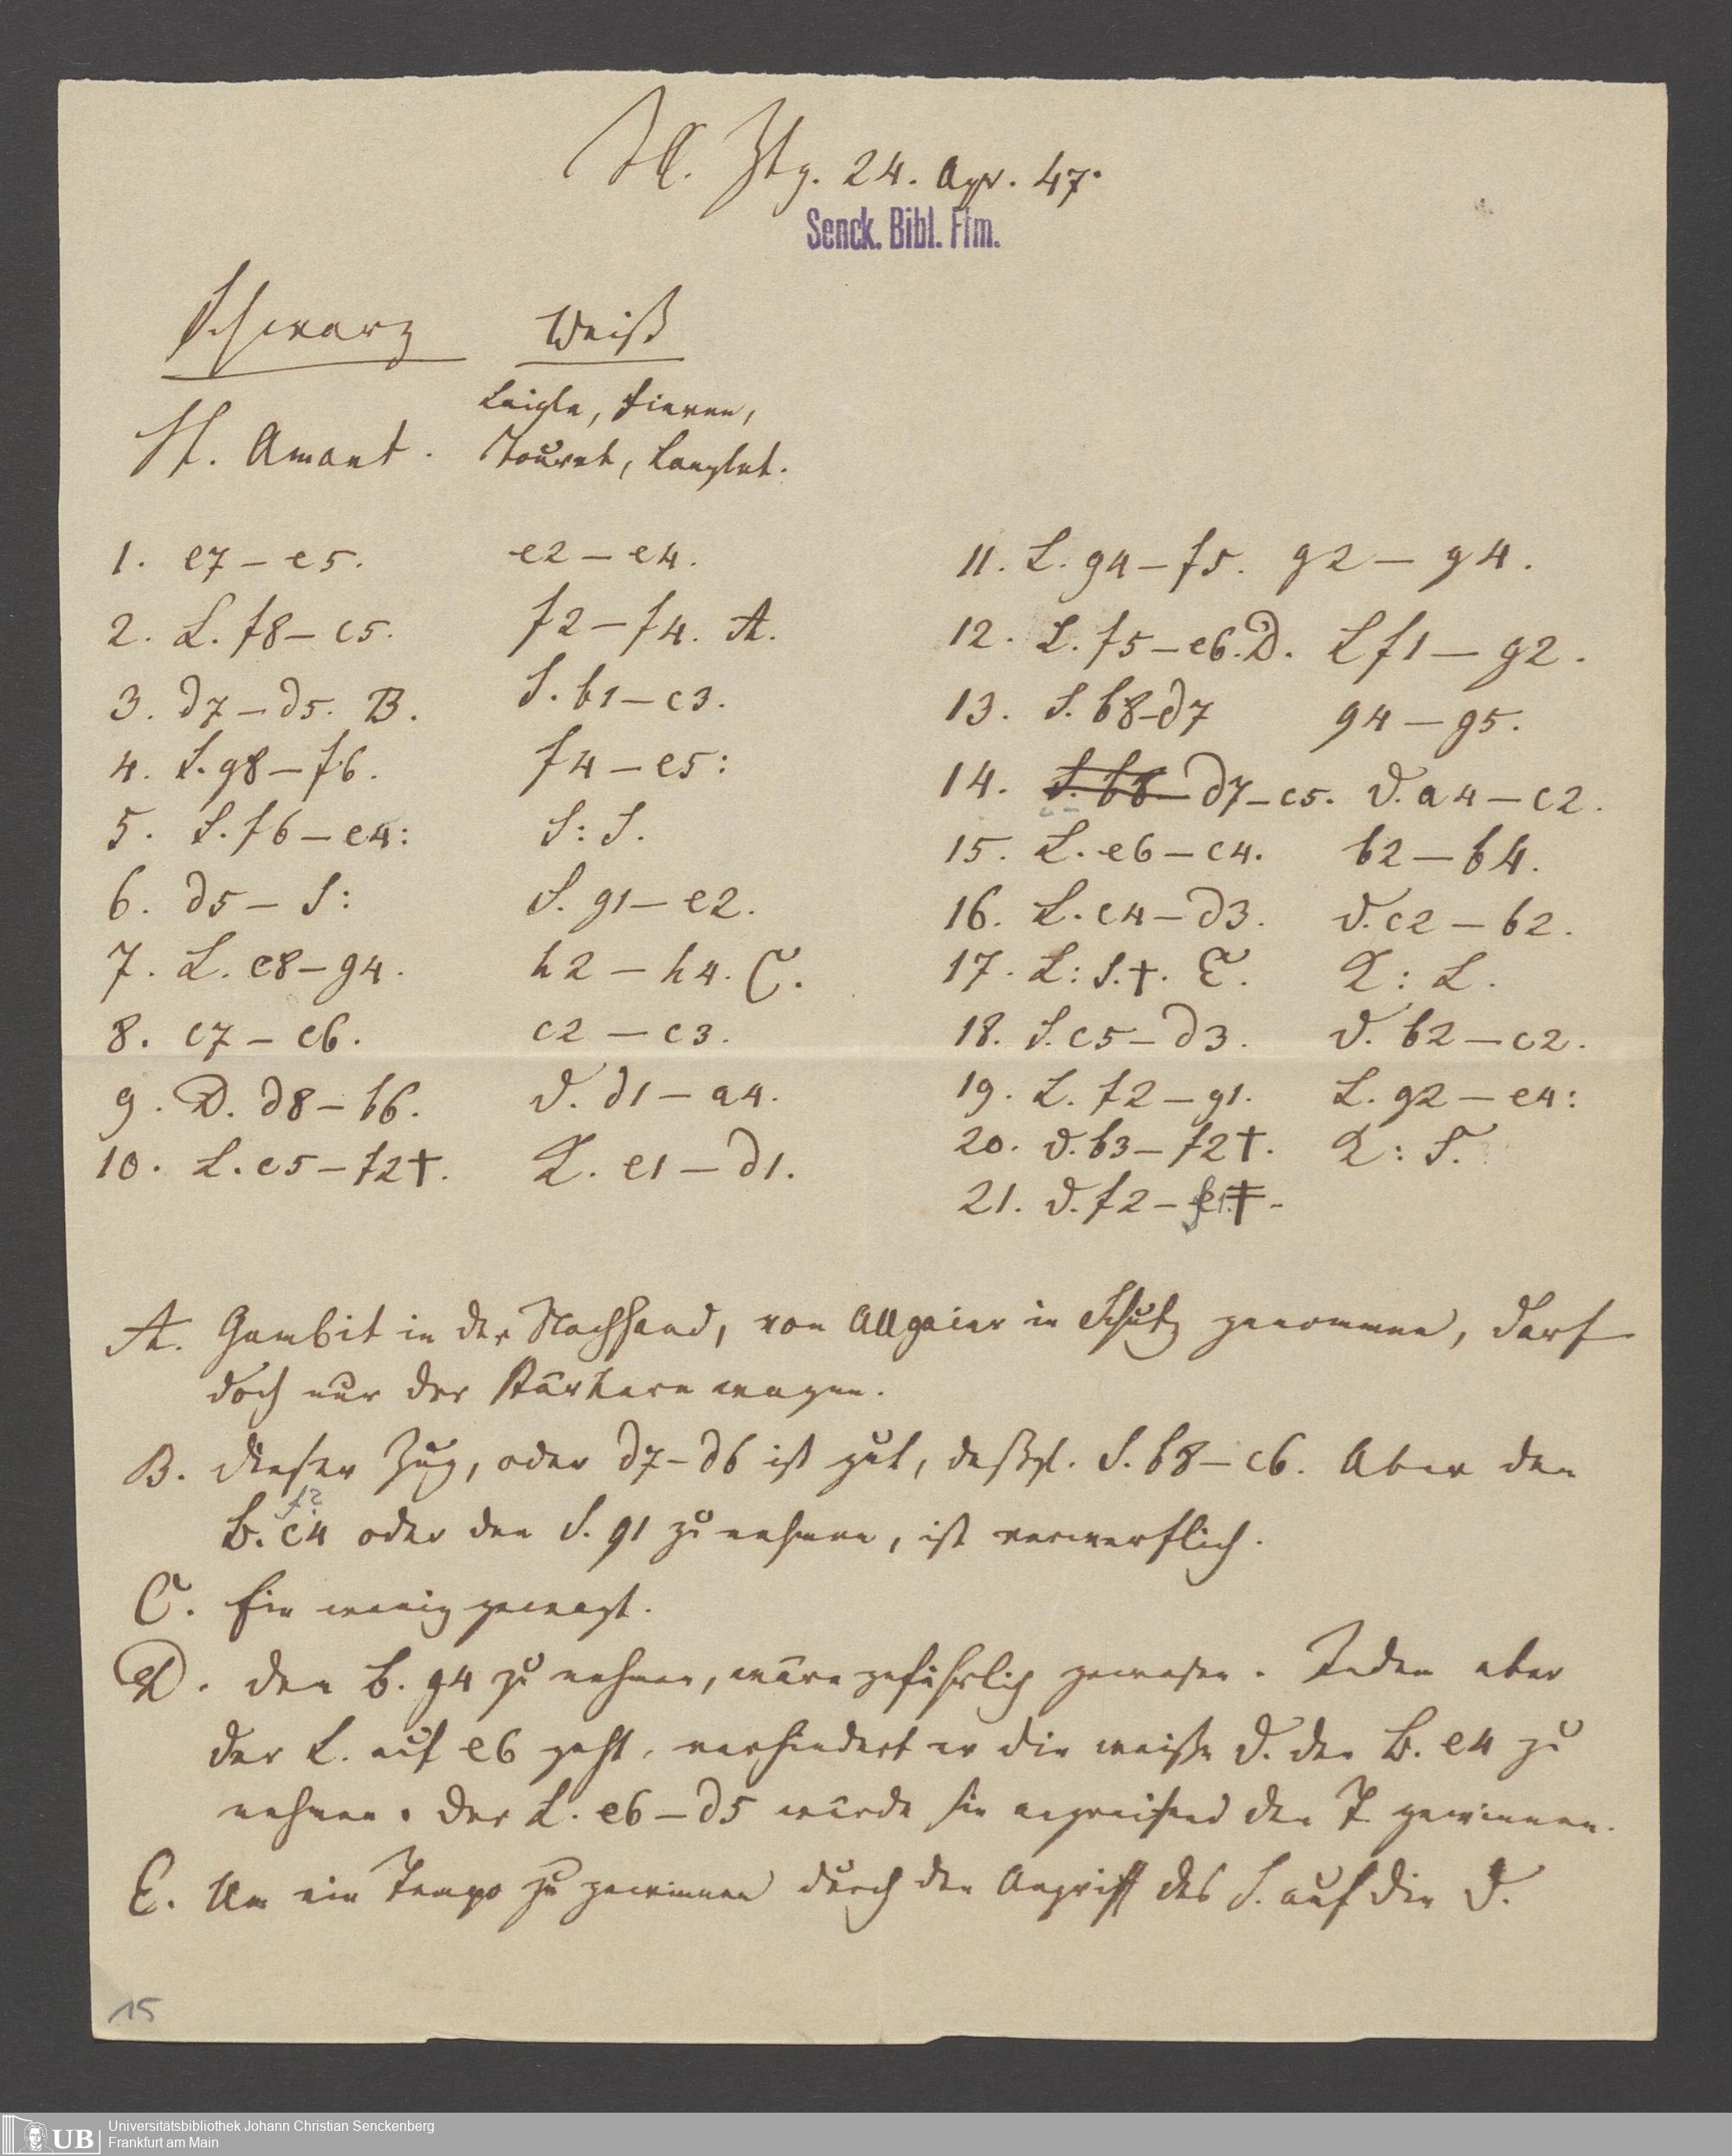 Ill. Ztg. 24. Apr. 47.
Senck. Bibl. Ffm.
Schwarz Weiß
St. Amant. Laigle, Sieren,
Touret, Langlet.
1. e7 – e5. e2 – e4.
2. L. f8 – c5. f2 – f4. A.
3. d7 – d5. B. S. b1 – c3.
4. S. g8 – f6. f4 – e5:
5. S. f6 – e4: S: S.
6. d5 – S: S. g1 – e2.
7. L. c8 – g4. h2 – h4. C.
8. c7 – c6. c2 – c3.
9. D. d8 – b6. D. d1 – a4.
10. L. c5 – f2†. K. e1 – d1.
11. L. g4 – f5. g2 – g4.
12. L. f5 – e6. D. L f1 – g2.
13. S. b8–d7 g4 – g5.
14. S. b8– d7–c5. D. a4 – c2.
15. L. e6 – c4. b2 – b4.
16. L. c4 – d3. D. c2 – b2.
17. L: S.†. E. K: L.
18. S. c5 – d3. D. b2 – c2.
19. L. f2 – g1. L. g2 – e4:
20. D. b3 – f2†. K: S.
21. D. f2 –
A. Gambit in der Nachhand, von Allgaier in Schutz genommen, darf
doch nur der Stärkere wagen.
B. Dieser Zug, oder d7–d6 ist gut, deßgl. S. b8–c6. Aber den
f?
B. e4 oder den S. g1 zu nehmen, ist verwerflich.
C. Ein wenig gewagt.
D. Den B. g4 zu nehmen, wäre gefährlich gewesen. Indem aber
der L. auf e6 geht, verhindert er die weiße D. den B. e4 zu
nehmen. Der L. e6–d5 würde sie angreifend den T. gewinnen.
E. Um ein Tempo zu gewinnen durch den Angriff des S. auf die D.
15
UB
Universitätsbibliothek Johann Christian Senckenberg
Frankfurt am Main